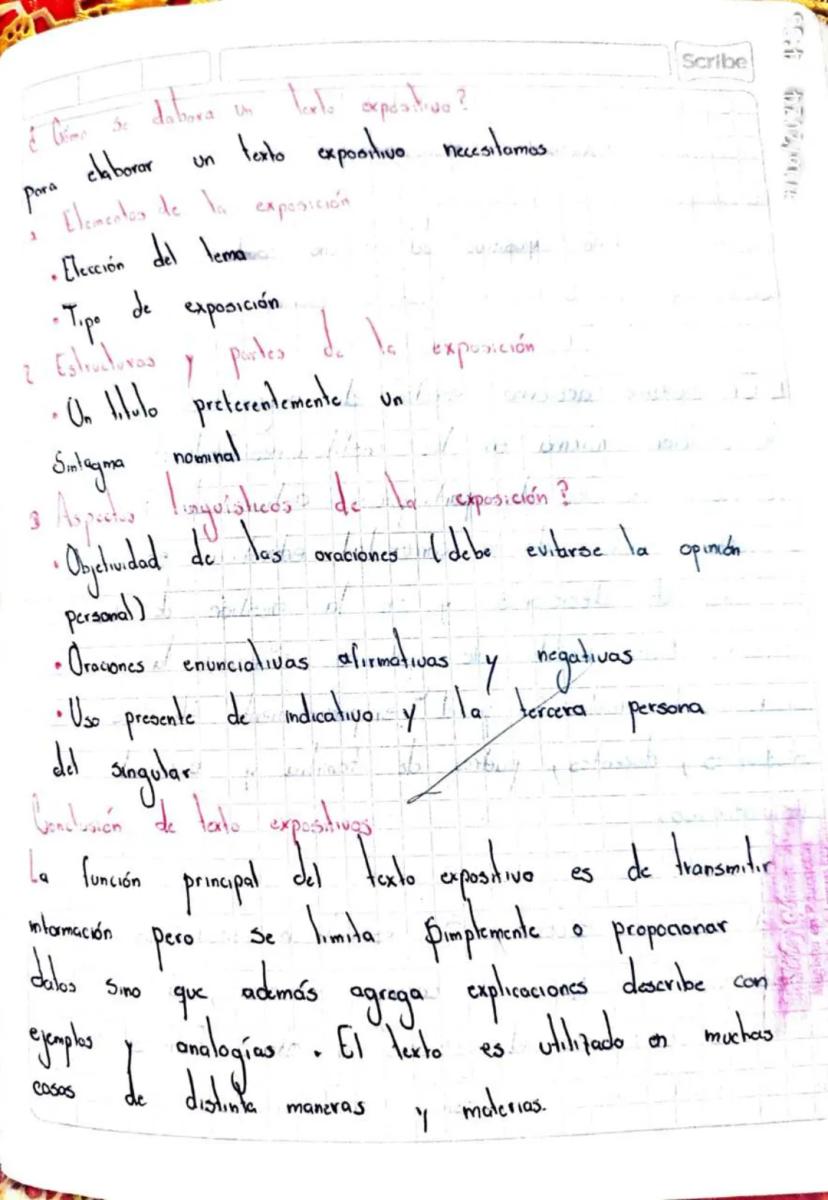 Scribe
¿Cómo se elabora un texto expositivo?
para elaborar un texto expositivo necesitamos
1 Elementos de la exposición
• Elección del tema
• Tipo de exposición
2 Estructuras y partes de la exposición
• Un titulo preferentemente un
Sintagma nominal
3 Aspectos lingüísticos de la exposición?
• Objetividad de las oraciones (debe evitarse la opinión
personal)
• Oraciones enunciativas afirmativas y negativas
• Uso presente de indicativo y la tercera persona
del singular
Conclusión de texto expositivos
La función principal del texto expositivo es de transmitir
información pero se limita simplemente a propocionar
datos sino que además agrega explicaciones describe con
ejemplos y analogías. El texto es utilizado en muchas
cosas de distinta maneras y materias.